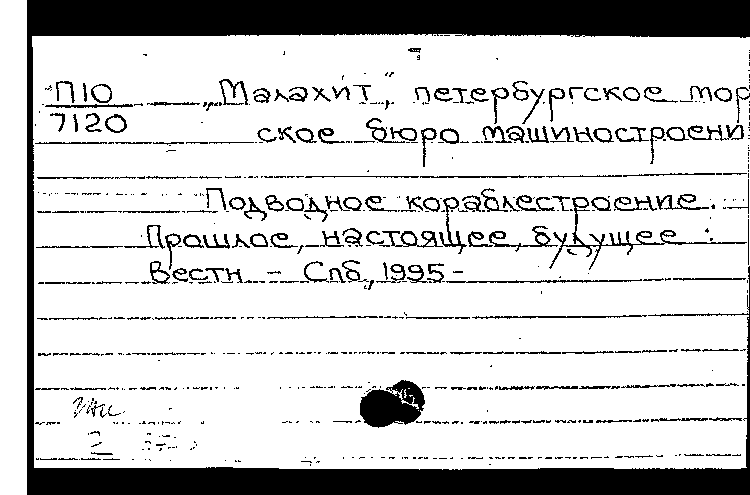 П10 „Малахит", петербургское мор
7120
ское бюро машиностроени
Подводное кораблестроение.
Прошлое, настоящее, будущее :
Вестн. - Спб., 1995-
2